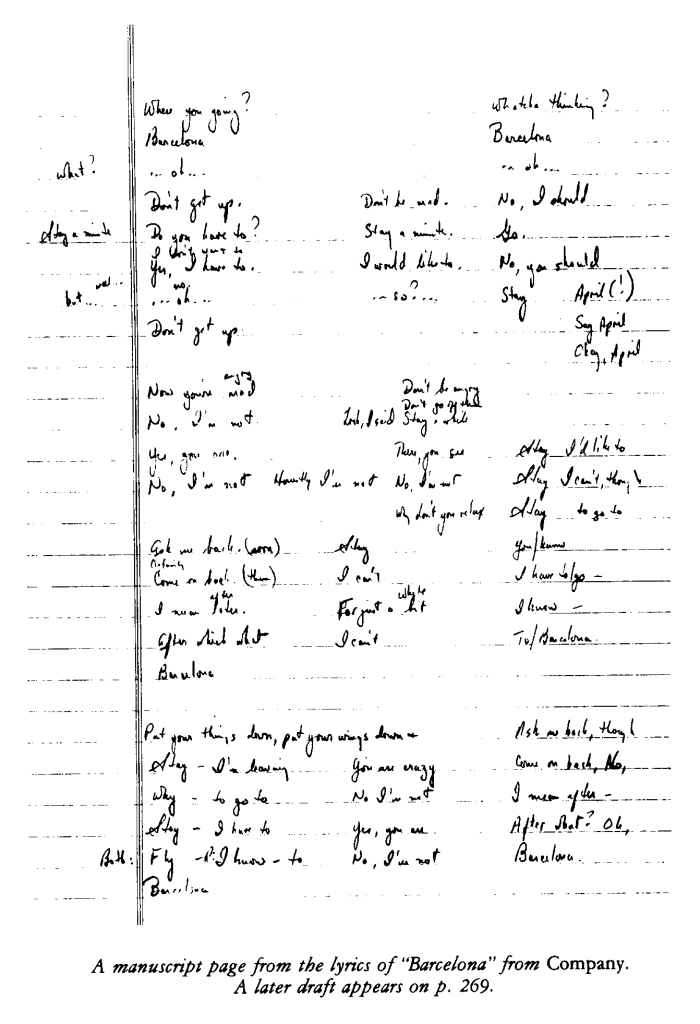 Where you going? Whatcha thinking?
Barcelona Barcelona
what? ... oh... ... oh...
Don't get up. Don't be mad. No, I should
Stay a minute Do you have to? Stay a minute. Go.
I don't want to
Yes, I have to. I would like to. No, you should
no.
but ... oh... ... so?... Stay April (!)
Don't get up Say April
Okay, April
angry Don't be angry
Now you're mad
No, I'm not Look, I said Stay a while
Yes, you are. There, you see Stay I'd like to
No, I'm not Honestly I'm not No, I'm not Stay I can't, though
Why don't you relax Stay to go to
Ask me back. (soon) Stay you/know
Come on back. (then) I can't I have to/go –
after while
I mean For just a bit I know –
After which what I can't To/Barcelona.
Barcelona
Put your things down, put your wings down Ask me back, though
Stay – I'm leaving You are crazy Come on back, No,
Why – to go to No I'm not I mean after –
Stay – I have to Yes, you are. After what? Oh,
Both: Fly – I know – to No, I'm not Barcelona.
Barcelona
A manuscript page from the lyrics of "Barcelona" from Company.
A later draft appears on p. 269.